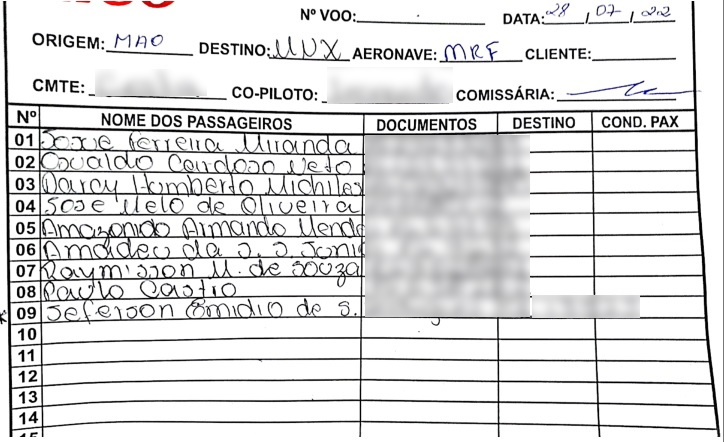 Nº VOO: DATA: 28 / 07 / 22
ORIGEM: MAO DESTINO: UNX AERONAVE: MRF CLIENTE:
CMTE: CO-PILOTO: COMISSÁRIA:
Nº NOME DOS PASSAGEIROS DOCUMENTOS DESTINO COND. PAX
01 Josue Ferreira Miranda
02 Osvaldo Cardoso Neto
03 Darcy Humberto Michiles
04 Jose Melo de Oliveira
05 Amazonido Armando Mendo
06 Amadeu da S. S. Juni
07 Raymisson M. de Souza
08 Paulo Castro
09 Jeferson Emidio de S.
10
11
12
13
14
15